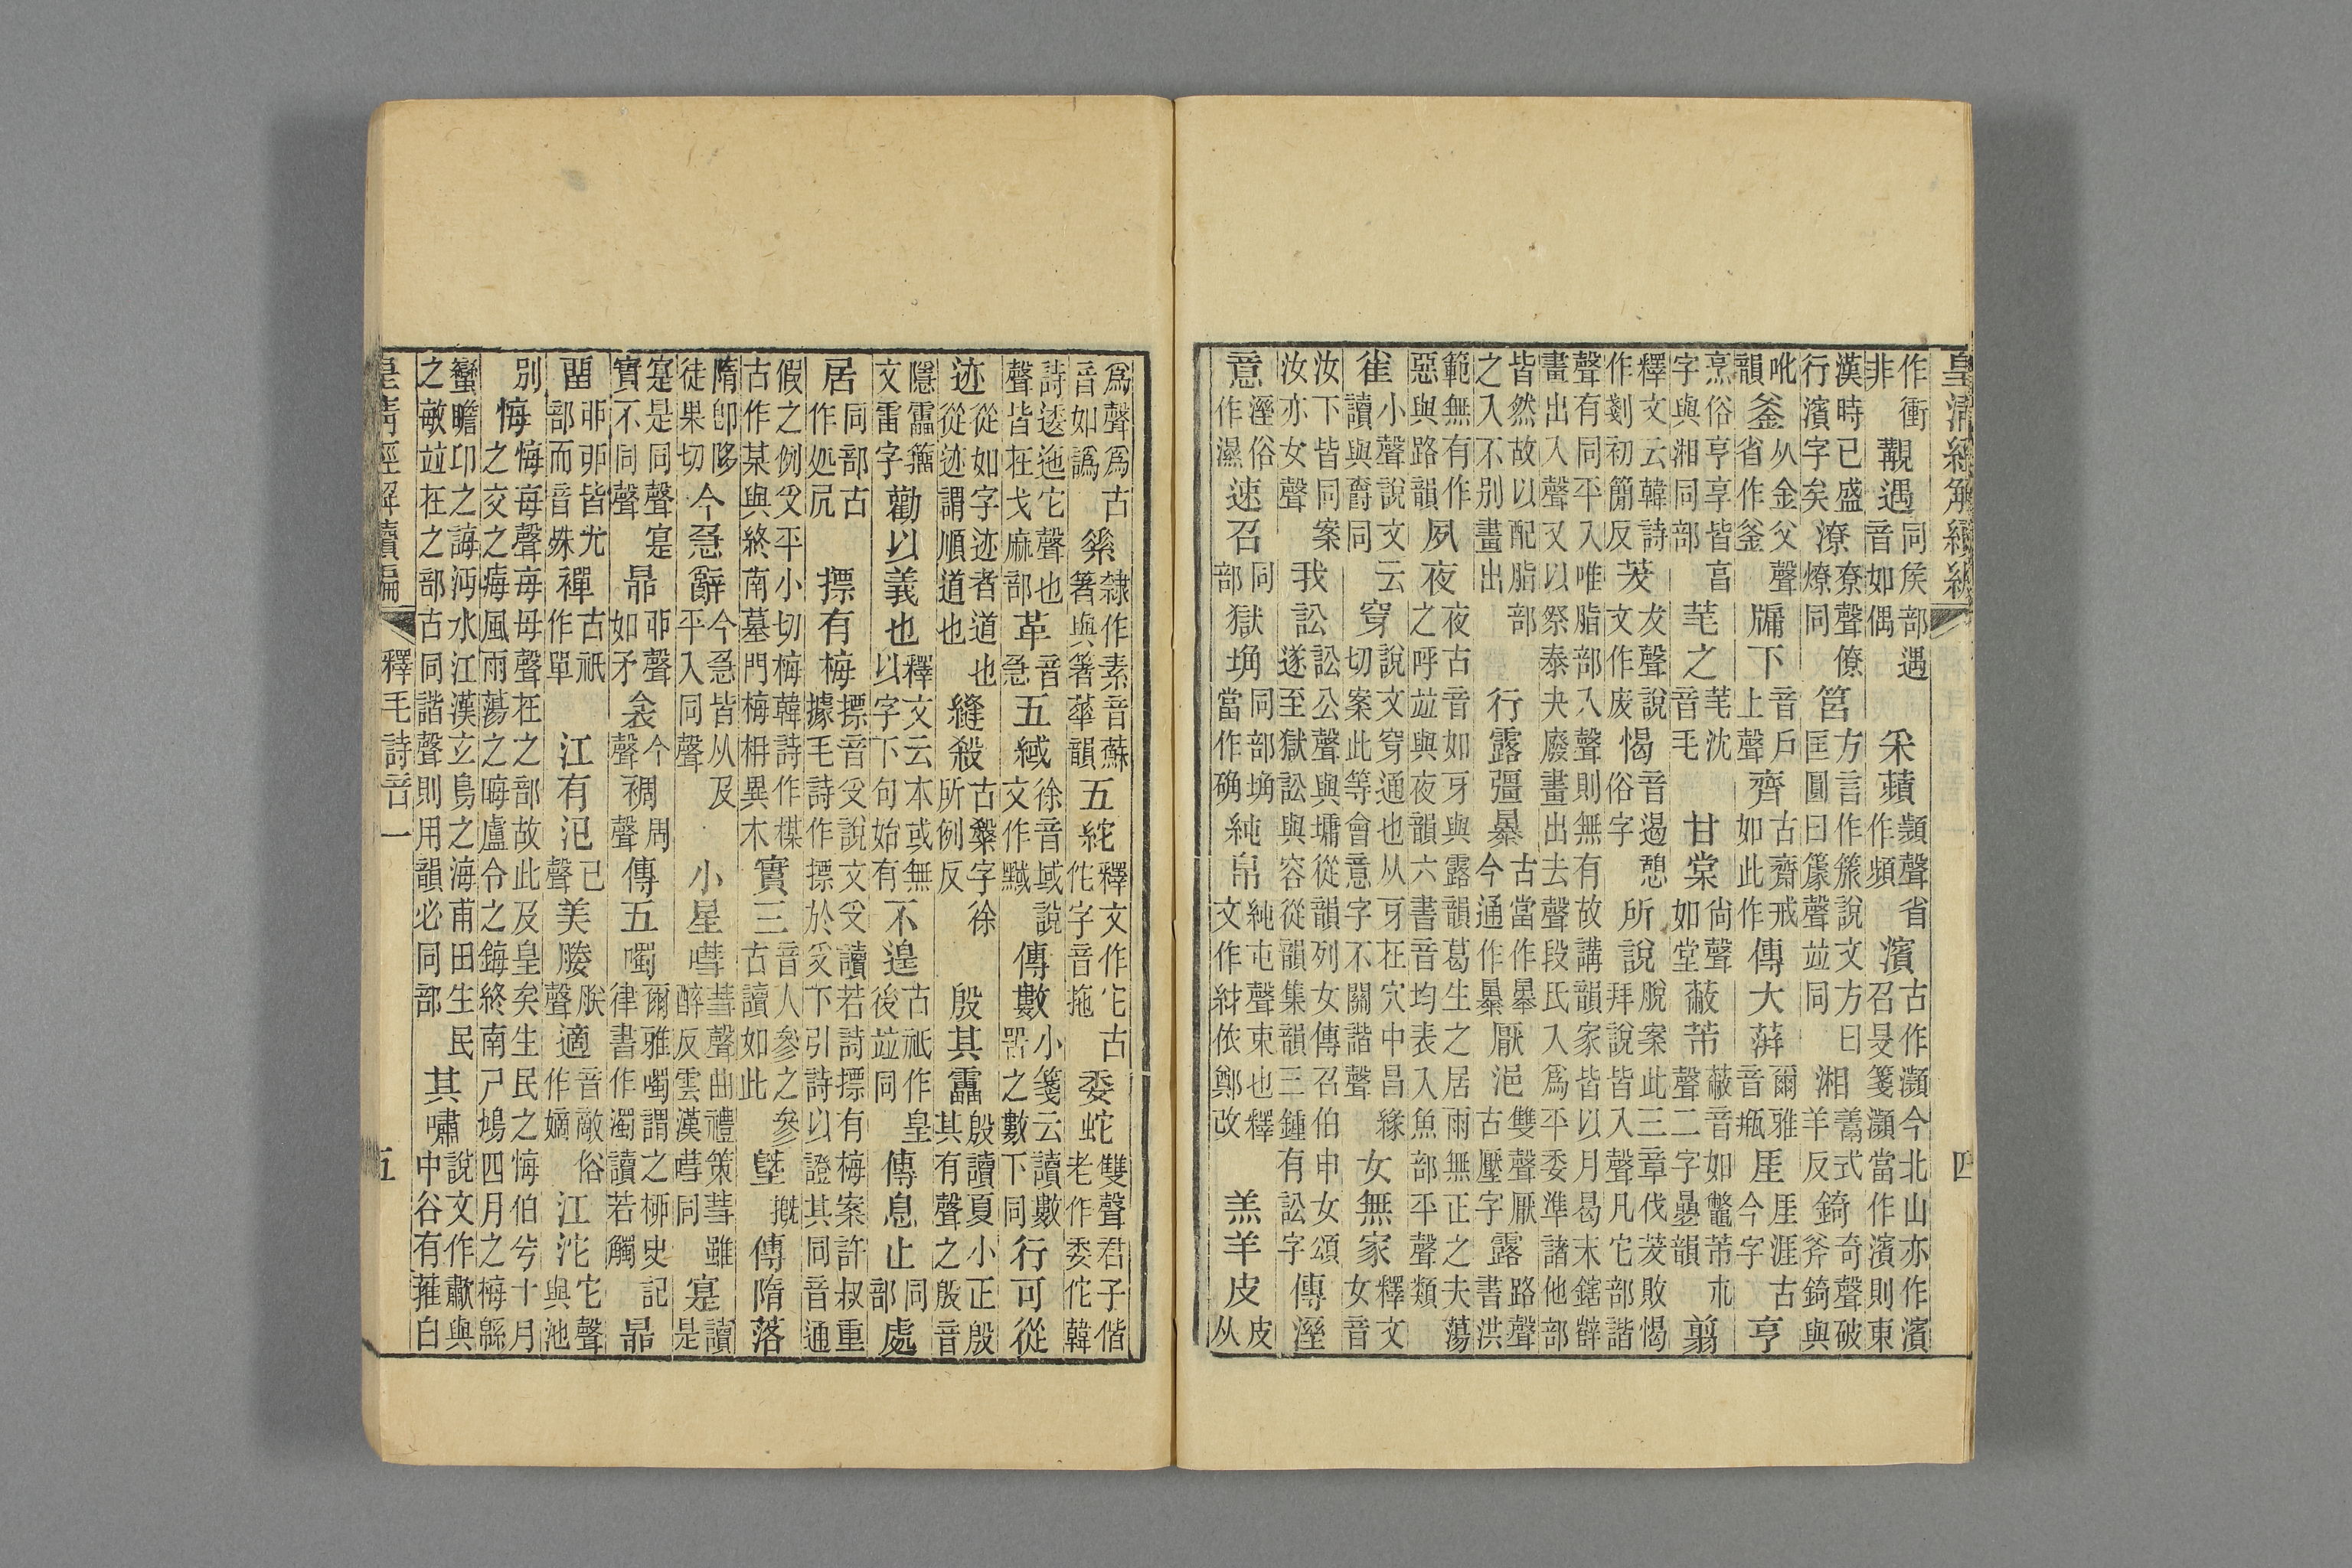 皇清經解續編 四
作衝非覯遇同矦部遇音如偶采蘋頻聲省作頻濱古作瀕今北山亦作濱召旻箋瀕當作濱則東
漢時已盛行濱字矣潦尞聲僚燎同筥方言作說文方曰匡圓曰聲並同湘鬺式羊反錡奇聲破斧錡與
吪韻釜从金父聲省作釜牖下音戶上聲齊古齋戒如此作傳大蓱爾雅音瓶厓厓涯古今字亨
烹俗亨享皆亯字與湘同部芼之芼沈音毛甘棠尙聲如堂蔽芾蔽音如鼈芾巿聲二字曡韻翦
釋文云韓詩作剗初簡反茇犮聲說文作废愒音遏憩俗字所說脫案此三章伐茇敗愒拜說皆入聲凡它部諧
聲有同平入唯脂部入聲則無有故講韻家皆以月曷末鎋辥畫出入聲又以祭泰夬廢畫出去聲段氏入爲平委準諸他部
皆然故以配脂部之入不别畫出行露彊㬥古當作曓今通作㬥厭浥雙聲厭古壓字露路聲書洪
範無有作惡與路韻夙夜夜古音如牙與露韻葛生之居雨無正之夫蕩之呼並與夜韻六書音均表入魚部平聲類
雀小聲說文云讀與爵同穿說文穿通也从牙在穴中昌緣切案此等會意字不關諧聲女無家釋文女音
汝下皆同案汝亦女聲我訟訟公聲與墉從韻列女傳召伯申女頌遂至獄訟與容從韻集韻三鍾有訟字傳溼
意溼俗作濕速召同部獄埆同部埆當作确純帛純屯聲束也釋文作紂依鄭改羔羊皮皮从
爲聲爲古音如譌隸作素音蘇箸與箸蕐韻五紽釋文作它古佗字音拖委蛇雙聲君子偕老作委佗韓
詩逶迤它聲也聲皆在戈麻部革音急五緎徐音域說文作黬傳數小箋云讀數罟之數下同行可從
迹從如字迹者道也從迹謂順道也縫殺古字徐所例反殷其靁殷讀夏小正殷其有聲之殷音
隱靁籒文雷字勸以義也釋文云本或無以字下句始有不遑古祇作皇後並同傳息止同部處
居同部古作処凥摽有梅摽音𠬪說文𠬪讀若詩摽有梅案許叔重據毛詩作摽於𠬪下引詩以證其同音通
假之例𠬪平小切梅韓詩作楳古作某與終南墓門梅枏異木實三音人參之參古讀如此塈摡傳隋落
隋卽陊徒果切今急辭今急皆从及平入同聲小星嘒彗聲曲禮策彗雖醉反雲漢嘒同寔讀是
寔是同聲寔實不同聲昴丣聲如矛衾今聲裯周聲傳五噣爾雅噣謂之柳史記律書作濁讀若觸昴
畱丣戼皆尤部而音殊禪古祇作單江有汜已聲美媵朕聲適音敵俗作嫡江沱它聲與池
別悔悔每聲每母聲在之部故此及皇矣生民之悔伯兮十月之交之痗風雨蕩之晦盧令之鋂終南尸鳩四月之梅緜
蠻瞻卬之誨沔水江漢玄鳥之海甫田生民之敏並在之部古同諧聲則用韻必同部其嘯說文作歗與中谷有蓷白
皇清經解續編 釋毛詩音一 五